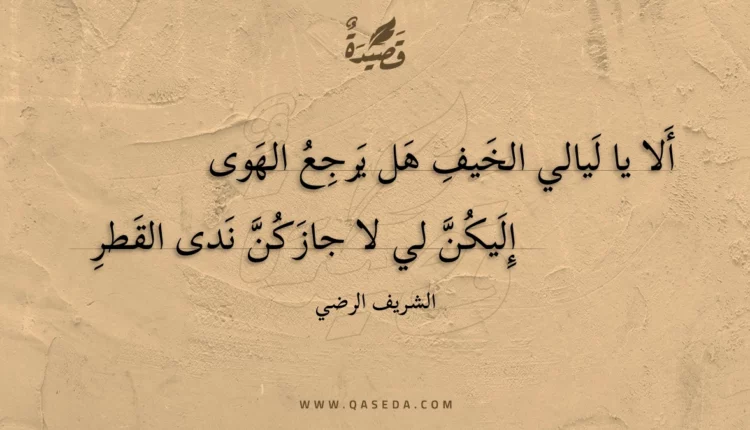 قَصِيدَةٌ
أَلا يا لَيالي الخَيفِ هَل يَرجِعُ الهَوى
إِلَيكُنَّ لي لا جازَكُنَّ نَدى القَطرِ
الشريف الرضي
WWW.QASEDA.COM